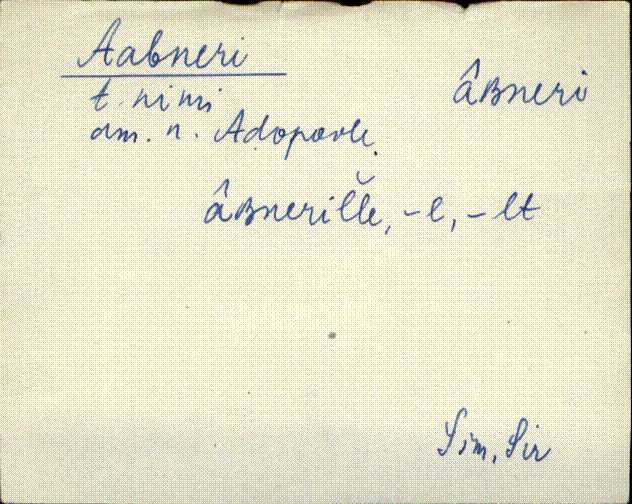 Aabneri
t. nimi
am. n. Adopoole.
âʙneri
âʙneriľľe, -l, -lt
Sim, Sir